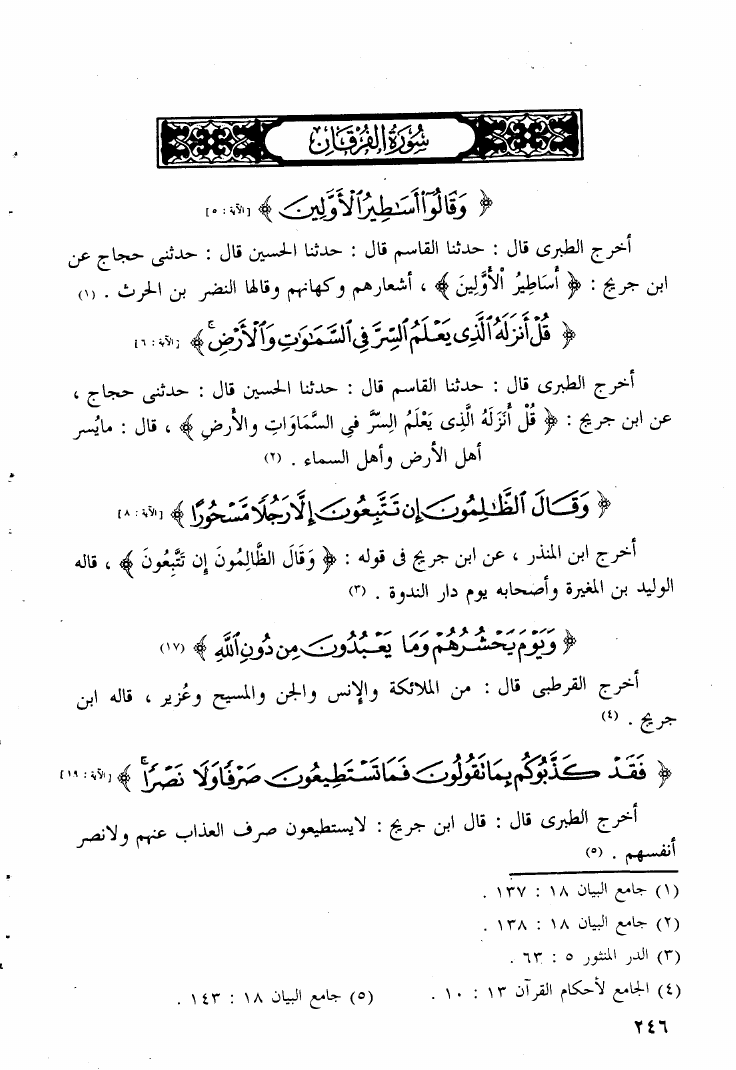 سُورَةُ الفُرْقَانِ
﴿ وَقَالُوٓا۟ أَسَٰطِيرُ ٱلْأَوَّلِينَ ﴾ [الآية : ٥]
أخرج الطبرى قال : حدثنا القاسم قال : حدثنا الحسين قال : حدثنى حجاج عن
ابن جريج : ﴿ أَسَاطِيرُ الْأَوَّلِينَ ﴾ ، أشعارهم وكهانهم وقالها النضر بن الحرث . (١)
﴿ قُلْ أَنزَلَهُ ٱلَّذِى يَعْلَمُ ٱلسِّرَّ فِى ٱلسَّمَٰوَٰتِ وَٱلْأَرْضِ ۚ ﴾ [الآية : ٦]
أخرج الطبرى قال : حدثنا القاسم قال : حدثنا الحسين قال : حدثنى حجاج ،
عن ابن جريج : ﴿ قُلْ أَنْزَلَهُ الَّذِى يَعْلَمُ السِّرَّ فى السَّمَاوَاتِ والأرضِ ﴾ ، قال : مايُسر
أهل الأرض وأهل السماء . (٢)
﴿ وَقَالَ ٱلظَّٰلِمُونَ إِن تَتَّبِعُونَ إِلَّا رَجُلًا مَّسْحُورًا ﴾ [الآية : ٨]
أخرج ابن المنذر ، عن ابن جريج فى قوله : ﴿ وَقَالَ الظَّالِمُونَ إِن تَتَّبِعُونَ ﴾ ، قاله
الوليد بن المغيرة وأصحابه يوم دار الندوة . (٣)
﴿ وَيَوْمَ يَحْشُرُهُمْ وَمَا يَعْبُدُونَ مِن دُونِ ٱللَّهِ ﴾ (١٧)
أخرج القرطبى قال : من الملائكة والإنس والجن والمسيح وعُزير ، قاله ابن
جريج . (٤)
﴿ فَقَدْ كَذَّبُوكُم بِمَا تَقُولُونَ فَمَا تَسْتَطِيعُونَ صَرْفًا وَلَا نَصْرًا ۚ ﴾ [الآية : ١٩]
أخرج الطبرى قال : قال ابن جريج : لايستطيعون صرف العذاب عنهم ولانصر
أنفسهم . (٥)
(١) جامع البيان ١٨ : ١٣٧ .
(٢) جامع البيان ١٨ : ١٣٨ .
(٣) الدر المنثور ٥ : ٦٣ .
(٤) الجامع لأحكام القرآن ١٣ : ١٠ . (٥) جامع البيان ١٨ : ١٤٣ .
٢٤٦